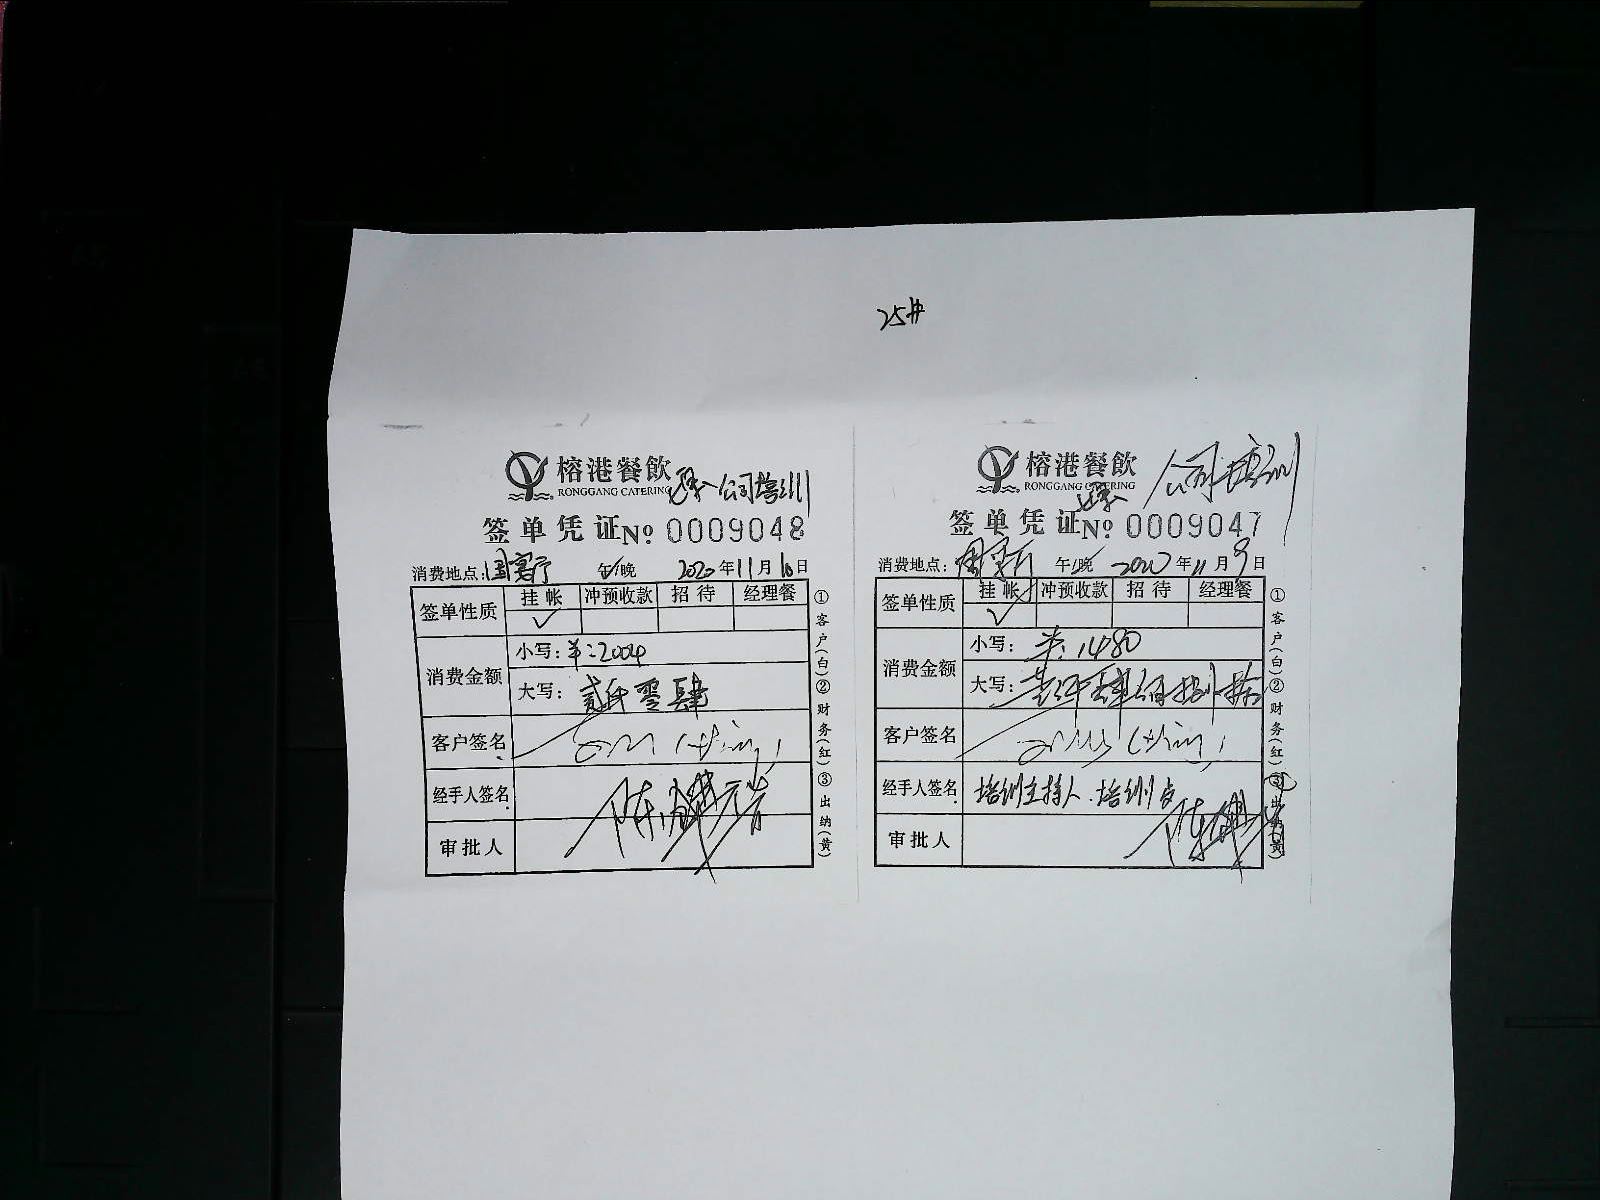 25#
榕港餐飲
RONGGANG CATERING
公司培训
签单凭证 No 0009048
消费地点: 国宴厅 午/晚 2020年11月10日
签单性质 挂帐 冲预收款 招待 经理餐
✓
消费金额 小写: 2004
大写: 贰仟零肆
客户签名
经手人签名
审批人
①客户(白)②财务(红)③出纳(黄)
榕港餐飲
RONGGANG CATERING
公司培训
签单凭证 No 0009047
消费地点: 午/晚 2020年11月9日
签单性质 挂帐 冲预收款 招待 经理餐
✓
消费金额 小写: 1480
大写:
客户签名
经手人签名 培训主持人.培训
审批人
①客户(白)②财务(红)③出纳(黄)